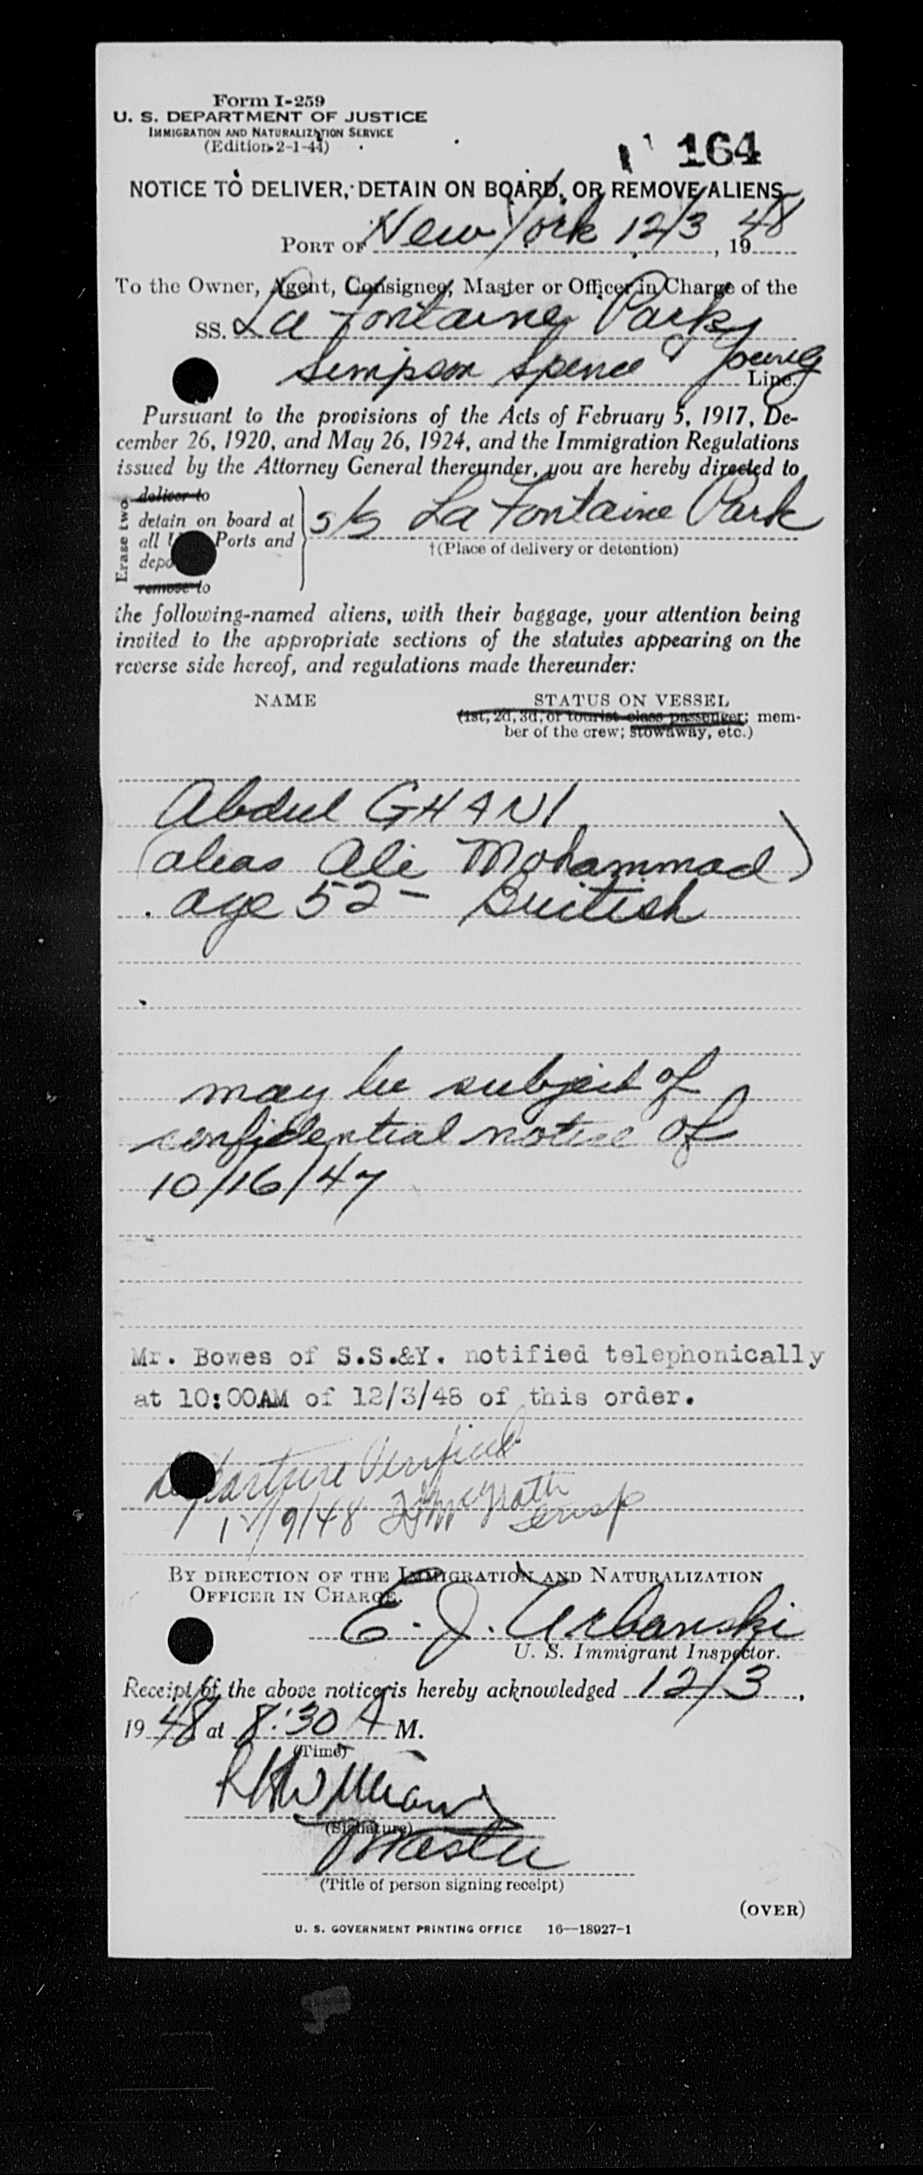 Form I-259
U. S. DEPARTMENT OF JUSTICE
IMMIGRATION AND NATURALIZATION SERVICE
(Edition 2-1-44)
164
NOTICE TO DELIVER, DETAIN ON BOARD, OR REMOVE ALIENS
PORT OF New York 12/3, 1948
To the Owner, Agent, Consignee, Master or Officer in Charge of the
SS. La Fontaine Park
Simpson Spence Young Line.
Pursuant to the provisions of the Acts of February 5, 1917, De-
cember 26, 1920, and May 26, 1924, and the Immigration Regulations
issued by the Attorney General thereunder, you are hereby directed to
Erase two
deliver to
detain on board at
all Ports and
remove to
s/s La Fontaine Park
†(Place of delivery or detention)
the following-named aliens, with their baggage, your attention being
invited to the appropriate sections of the statutes appearing on the
reverse side hereof, and regulations made thereunder:
NAME STATUS ON VESSEL
(1st, 2d, 3d, or tourist class passenger; mem-
ber of the crew; stowaway, etc.)
Abdul GHANI
(alias Ali Mohammad)
age 52 - British
may be subject of
confidential notice of
10/16/47
Mr. Bowes of S.S.&Y. notified telephonically
at 10:00AM of 12/3/48 of this order.
Departure Verified
12/9/48 McGrath
BY DIRECTION OF THE IMMIGRATION AND NATURALIZATION
OFFICER IN CHARGE.
E. J. Urbanski
U. S. Immigrant Inspector.
Receipt of the above notice is hereby acknowledged 12/3,
1948 at 8:30 A M.
(Time)
R H Williams
(Signature)
Master
(Title of person signing receipt)
(OVER)
U. S. GOVERNMENT PRINTING OFFICE 16—18927-1